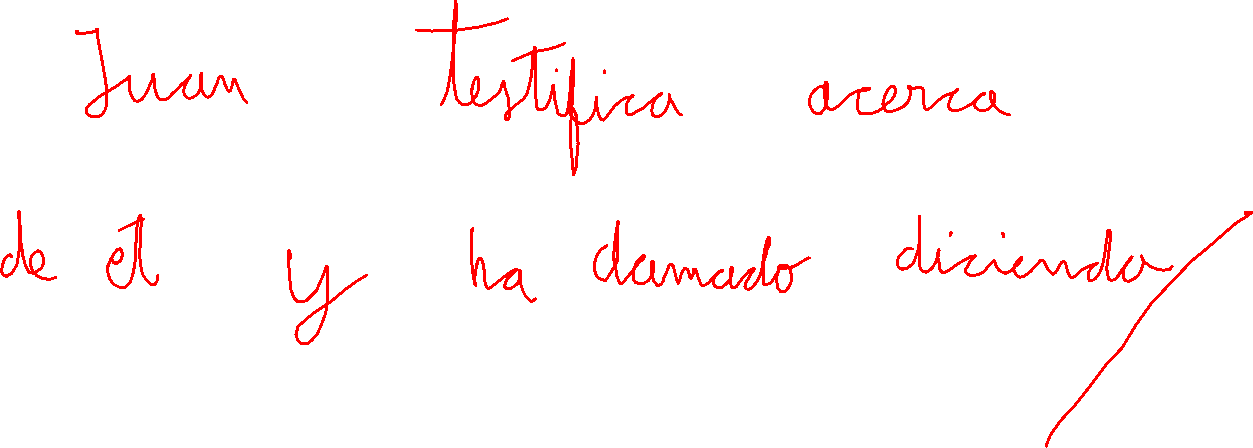 Juan testifica acerca
de él y ha clamado diciendo